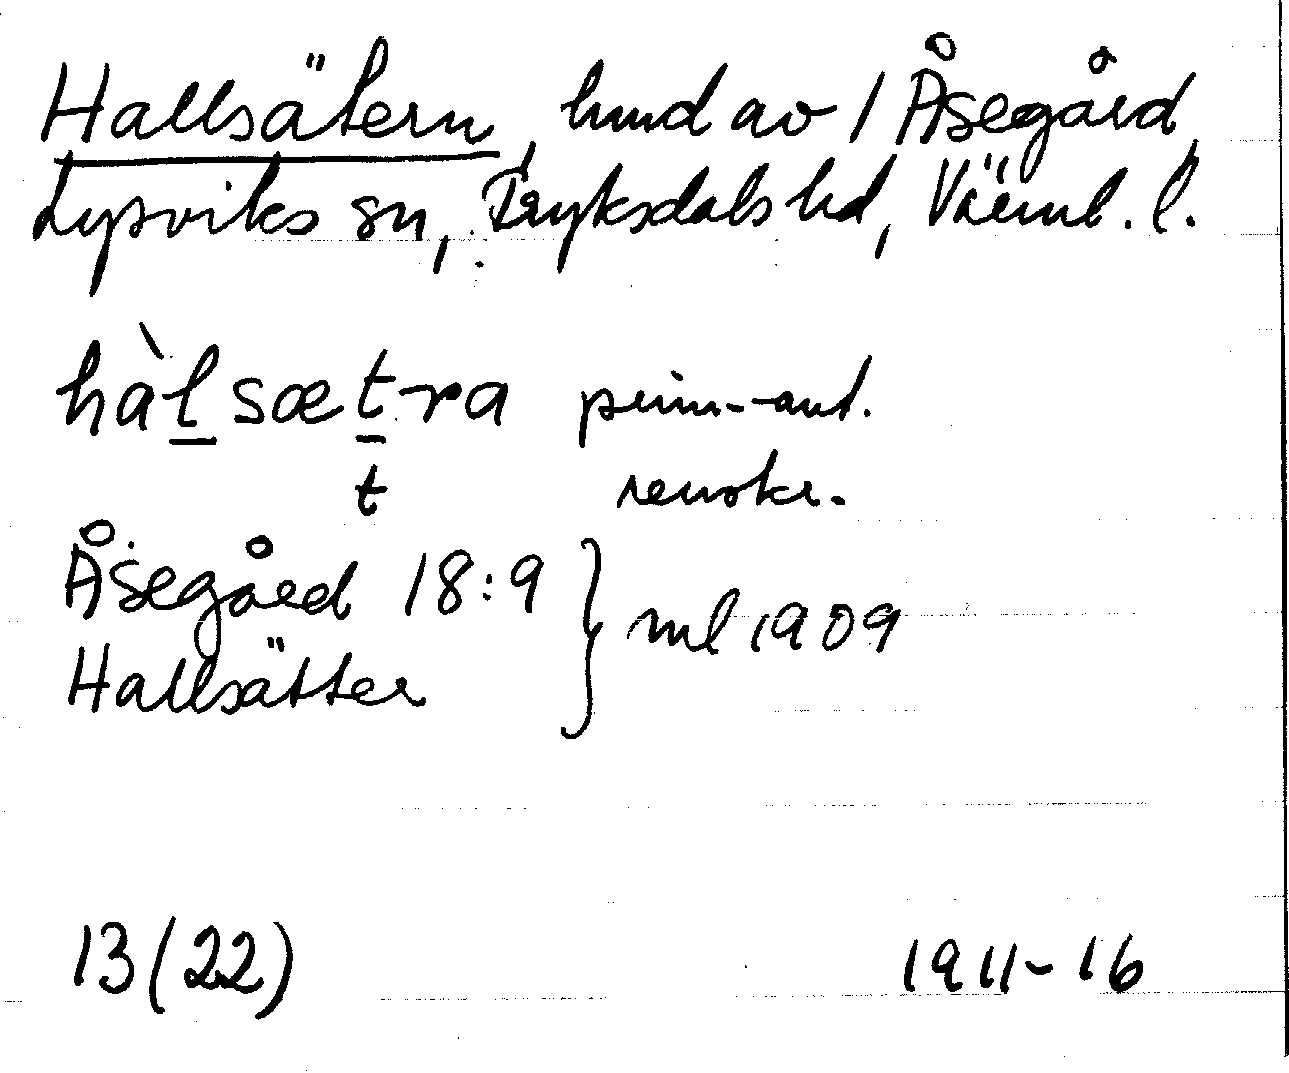 Hallsätern, hmd av 1 Åsegård
Lysviks sn, Fryksdals hd, Värml. l.
hàl sætra prim-ant.
t renskr.
Åsegård 18:9 } ml 1909
Hallsätter
13(22) 1911-16